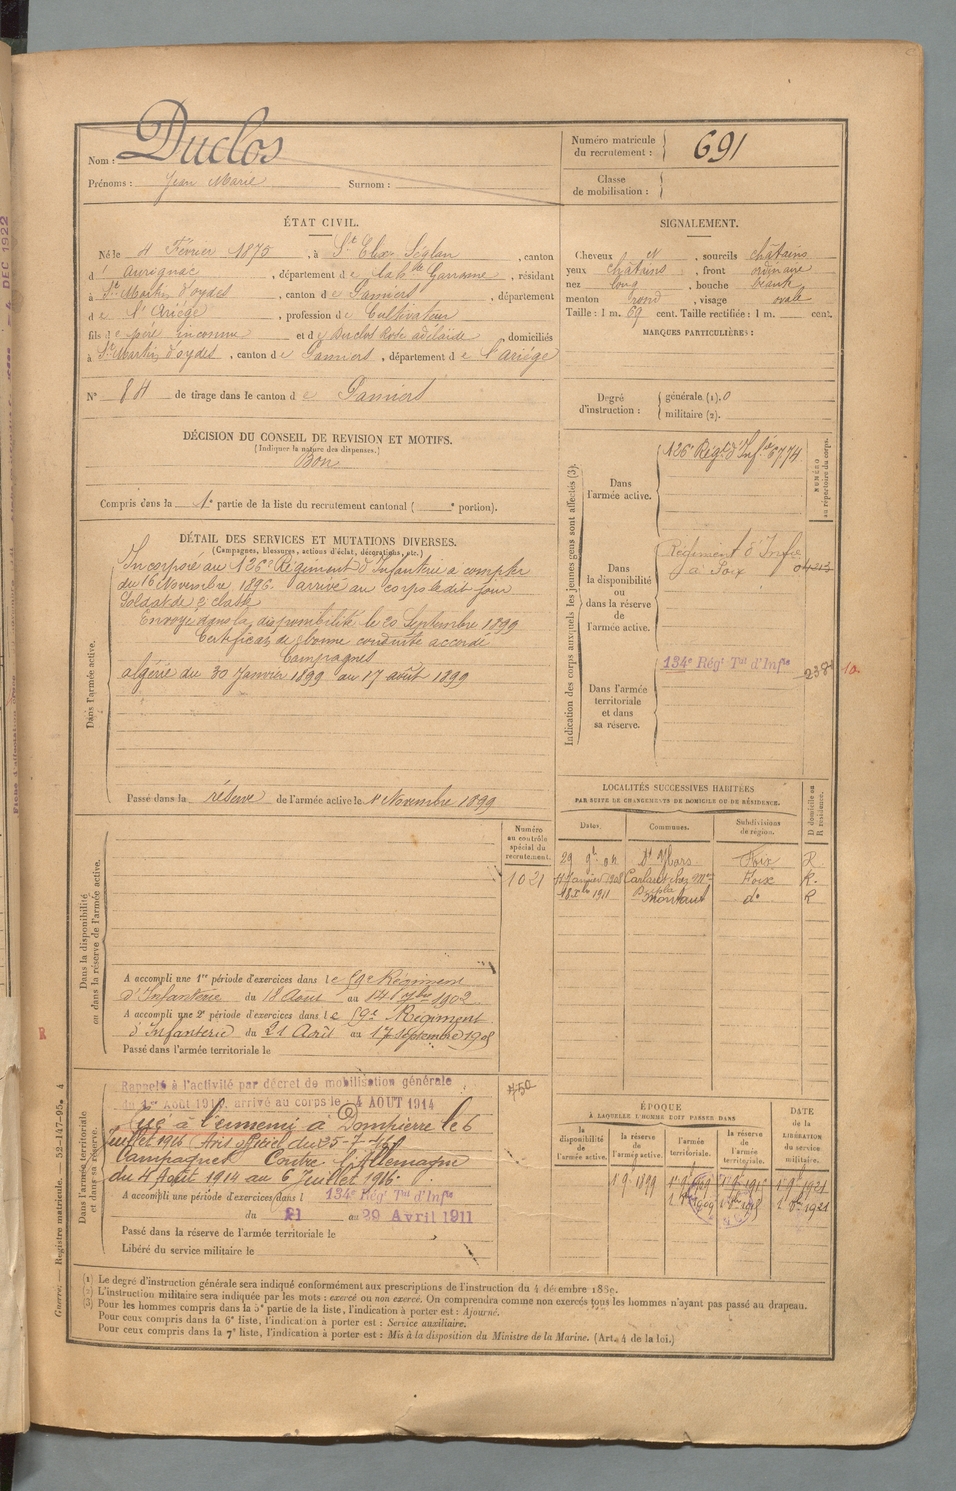 Nom : Duclos
Prénoms : Jean Marie Surnom :
Numéro matricule du recrutement : 691
Classe de mobilisation :
ÉTAT CIVIL.
Né le 4 Février 1875, à St Elix Séglan, canton
d' Aurignac, département de la Hte Garonne, résidant
à St Martin d'oydes, canton de Pamiers, département
de l'Ariège, profession de Cultivateur
fils de père inconnu et de Duclos Rose adélaïde, domiciliés
à St Martin d'oydes, canton de Pamiers, département de l'ariège
N° 84 de tirage dans le canton de Pamiers
SIGNALEMENT.
Cheveux et, sourcils châtains
yeux châtains, front ordinaire
nez long, bouche
menton rond, visage ovale
Taille : 1 m. 69 cent. Taille rectifiée : 1 m. cent.
MARQUES PARTICULIÈRES :
Degré d'instruction : générale (1). 0
militaire (2).
DÉCISION DU CONSEIL DE REVISION ET MOTIFS.
(Indiquer la nature des dispenses.)
Bon
Compris dans la 1e partie de la liste du recrutement cantonal ( e portion).
DÉTAIL DES SERVICES ET MUTATIONS DIVERSES.
(Campagnes, blessures, actions d'éclat, décorations, etc.)
Dans l'armée active.
Incorporé au 126e Régiment d'Infanterie à compter
du 16 Novembre 1896. arrivé au corps le dit jour
Soldat de 2e classe
Envoyé dans la disponibilité le 20 Septembre 1899
Certificat de bonne conduite accordé
Campagnes
algérie du 30 Janvier 1899 au 17 août 1899
Passé dans la réserve de l'armée active le 1er Novembre 1899
Indication des corps auxquels les jeunes gens sont affectés (3).
NUMÉRO au répertoire du corps.
Dans l'armée active.
126e Régt d'Infie 6774
Dans la disponibilité ou dans la réserve de l'armée active.
Régiment d'Infie
à Foix
Dans l'armée territoriale et dans sa réserve.
134e Régt Tal d'Infie
10.
LOCALITÉS SUCCESSIVES HABITÉES
PAR SUITE DE CHANGEMENTS DE DOMICILE OU DE RÉSIDENCE.
Dates. Communes. Subdivisions de région. D domicile ou R résidence.
St Ybars Foix R
11 Janvier 1908 Carlaret chez Mr Foix R.
18 Xbre 1911 Montaut do R
Dans la disponibilité ou dans la réserve de l'armée active.
Numéro au contrôle spécial du recrutement.
1021
A accompli une 1re période d'exercices dans le 59e Régiment
d'Infanterie du 18 Août au 14 7bre 1902
A accompli une 2e période d'exercices dans le 59e Régiment
d'Infanterie du 21 Avril au 17 septembre 1905
Passé dans l'armée territoriale le
Dans l'armée territoriale et dans sa réserve.
Rappelé à l'activité par décret de mobilisation générale
du 1er Août 1914, arrivé au corps le 4 AOUT 1914
750
Tué à l'ennemi à Dompierre le 6
Juillet 1916 (Avis officiel du 25-7-16)
Campagnes Contre l'Allemagne
du 4 Août 1914 au 6 Juillet 1916.
A accompli une période d'exercices dans l 134e Régt Tal d'Infie
du 21 au 29 Avril 1911
Passé dans la réserve de l'armée territoriale le
Libéré du service militaire le
ÉPOQUE
À LAQUELLE L'HOMME DOIT PASSER DANS
la disponibilité de l'armée active. la réserve de l'armée active. l'armée territoriale. la réserve de l'armée territoriale. DATE de la LIBÉRATION du service militaire.
1 9 1899
(1) Le degré d'instruction générale sera indiqué conformément aux prescriptions de l'instruction du 4 décembre 1889.
(2) L'instruction militaire sera indiquée par les mots : exercé ou non exercé. On comprendra comme non exercés tous les hommes n'ayant pas passé au drapeau.
(3) Pour les hommes compris dans la 5e partie de la liste, l'indication à porter est : Ajourné.
Pour ceux compris dans la 6e liste, l'indication à porter est : Service auxiliaire.
Pour ceux compris dans la 7e liste, l'indication à porter est : Mis à la disposition du Ministre de la Marine. (Art. 4 de la loi.)
Guerre. — Registre matricule. — 52-147-95. 4
4 DEC 1922
R